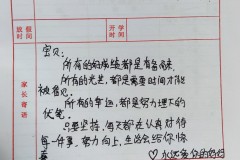 放假时间
开学时间
家长寄语
宝贝:
所有的好成绩都是有备而来,
所有的光芒,都是需要时间才能
被看见,
所有的幸运,都是努力埋下的
伏笔。
只要坚持,每天都在认真对待
每一件事,努力向上,生活会给你惊
喜 ♡永远爱你的妈妈